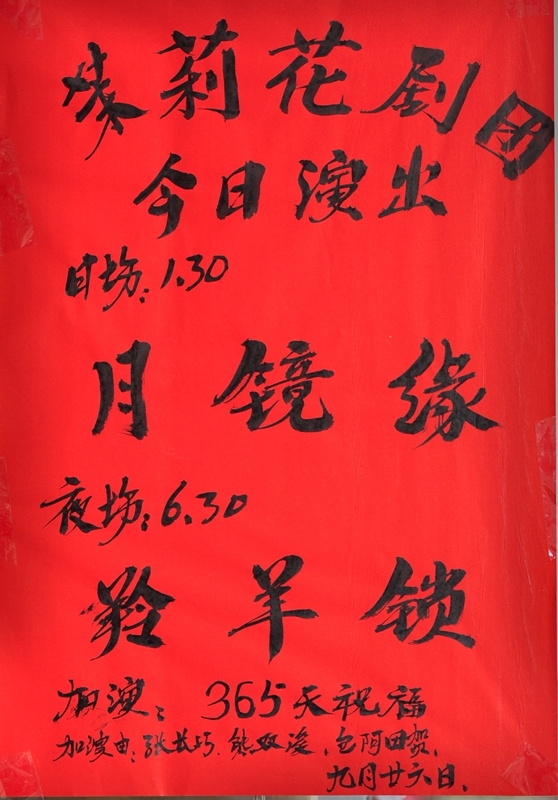 茉莉花剧团
今日演出
日场:1.30
月镜缘
夜场:6.30
羚羊锁
加演:365天祝福
加演由:张长巧.熊双凌.包阿田贺.
九月廿六日.